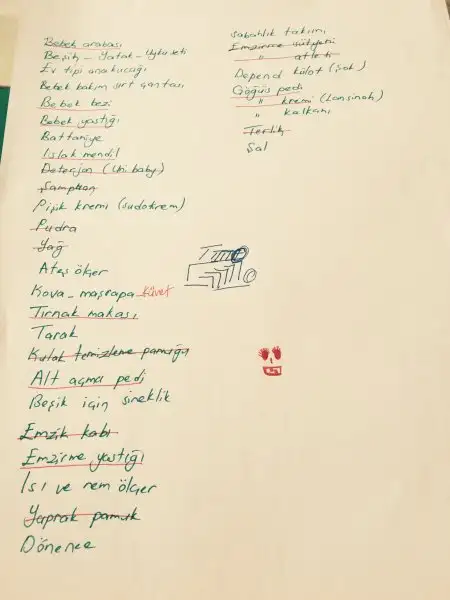 Bebek arabası
Beşik - Yatak - Uyku seti
Ev tipi anakucağı
Bebek bakım sırt çantası
Bebek bezi
Bebek yastığı
Battaniye
Islak mendil
Deterjan (Uni baby)
Şampuan
Pişik kremi (sudokrem)
Pudra
Yağ
Ateş ölçer
Kova - maşrapa küvet
Tırnak makası
Tarak
Kulak temizleme pamuğu
Alt açma pedi
Beşik için sineklik
Emzik kabı
Emzirme yastığı
Isı ve nem ölçer
Yaprak pamuk
Dönence
Sabahlık takımı
Emzirme sütyeni
" atleti
Depend külot (Şok)
Göğüs pedi
" kremi (Lansinoh)
" kalkanı
Terlik
Şal